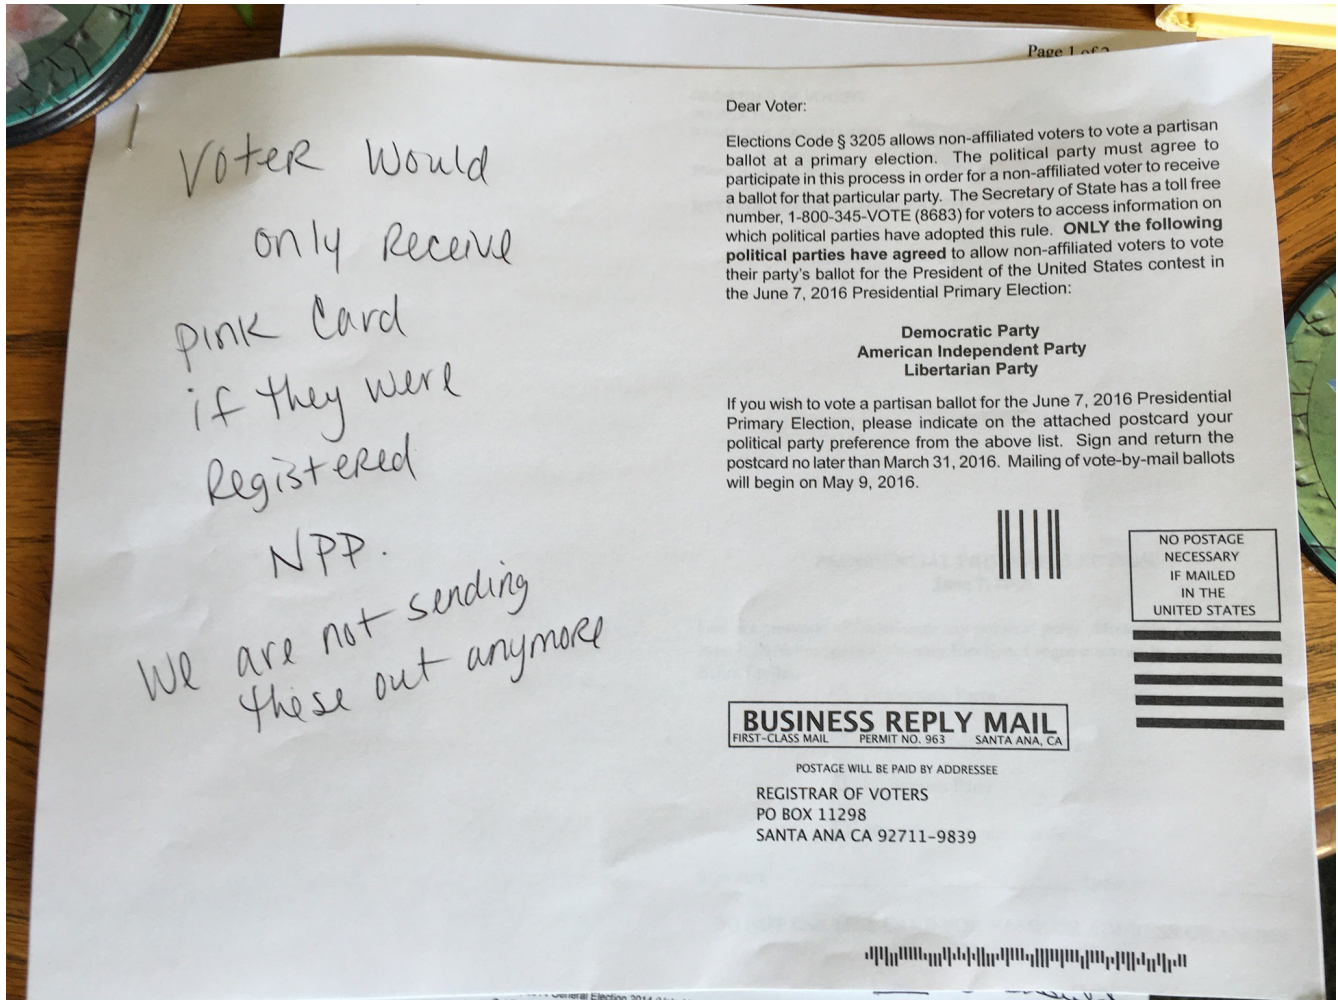 Page 1 of 2
Voter Would
only Receive
pink Card
if they were
Registered
NPP.
We are not sending
these out anymore
Dear Voter:
Elections Code § 3205 allows non-affiliated voters to vote a partisan
ballot at a primary election. The political party must agree to
participate in this process in order for a non-affiliated voter to receive
a ballot for that particular party. The Secretary of State has a toll free
number, 1-800-345-VOTE (8683) for voters to access information on
which political parties have adopted this rule. ONLY the following
political parties have agreed to allow non-affiliated voters to vote
their party's ballot for the President of the United States contest in
the June 7, 2016 Presidential Primary Election:
Democratic Party
American Independent Party
Libertarian Party
If you wish to vote a partisan ballot for the June 7, 2016 Presidential
Primary Election, please indicate on the attached postcard your
political party preference from the above list. Sign and return the
postcard no later than March 31, 2016. Mailing of vote-by-mail ballots
will begin on May 9, 2016.
NO POSTAGE
NECESSARY
IF MAILED
IN THE
UNITED STATES
BUSINESS REPLY MAIL
FIRST-CLASS MAIL PERMIT NO. 963 SANTA ANA, CA
POSTAGE WILL BE PAID BY ADDRESSEE
REGISTRAR OF VOTERS
PO BOX 11298
SANTA ANA CA 92711-9839
General Election 2014